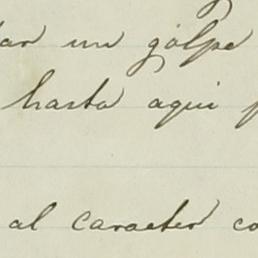 dar un golpe
hasta aqui p
al caracter co